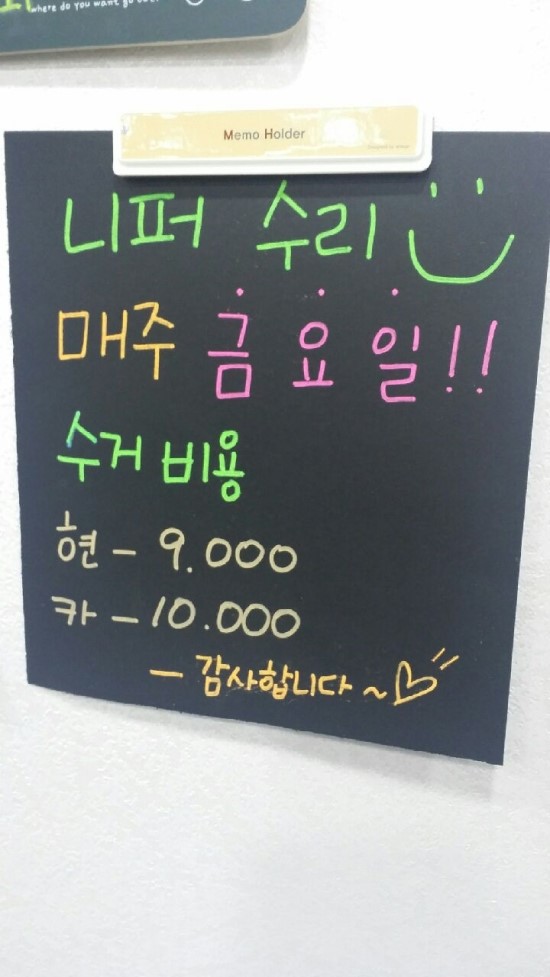 where do you want go
Memo Holder
니퍼 수리
매주 금요일!!
수거 비용
현 - 9.000
카 - 10.000
- 감사합니다 ~♡